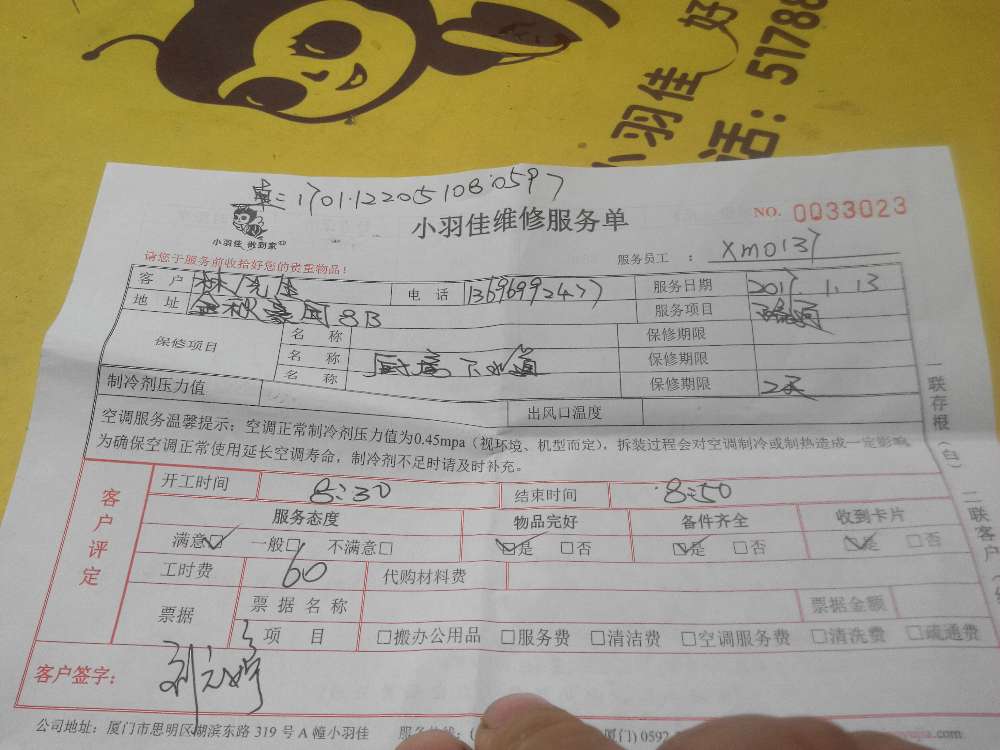 好
小羽佳
话：51788
单：1701122051080597
小羽佳 傲到家
小羽佳维修服务单
NO. 0033023
请您于服务前收拾好您的贵重物品！
服务员工 ： XM0137
客 户 电 话 13696992477 服务日期 2017.1.13
地 址 金秋豪园8B 服务项目
保修项目 名 称 保修期限
名 称 厨房下水道 保修期限
名 称 保修期限 2天
制冷剂压力值 出风口温度
空调服务温馨提示：空调正常制冷剂压力值为0.45mpa（视环境、机型而定），拆装过程会对空调制冷或制热造成一定影响
为确保空调正常使用延长空调寿命，制冷剂不足时请及时补充。
客户评定
开工时间 8:30 结束时间 8:50
服务态度 物品完好 备件齐全 收到卡片
满意☑ 一般□ 不满意□ ☑是 □否 ☑是 □否 ☑是 □否
工时费 60 代购材料费
票据 票 据 名 称 票据金额
项 目 □搬办公用品 □服务费 □清洁费 □空调服务费 □清洗费 □疏通费
客户签字：
公司地址：厦门市思明区湖滨东路 319 号 A 幢小羽佳 服务热线：
厦门) 0592
.com
一联存根（白）
二联客户